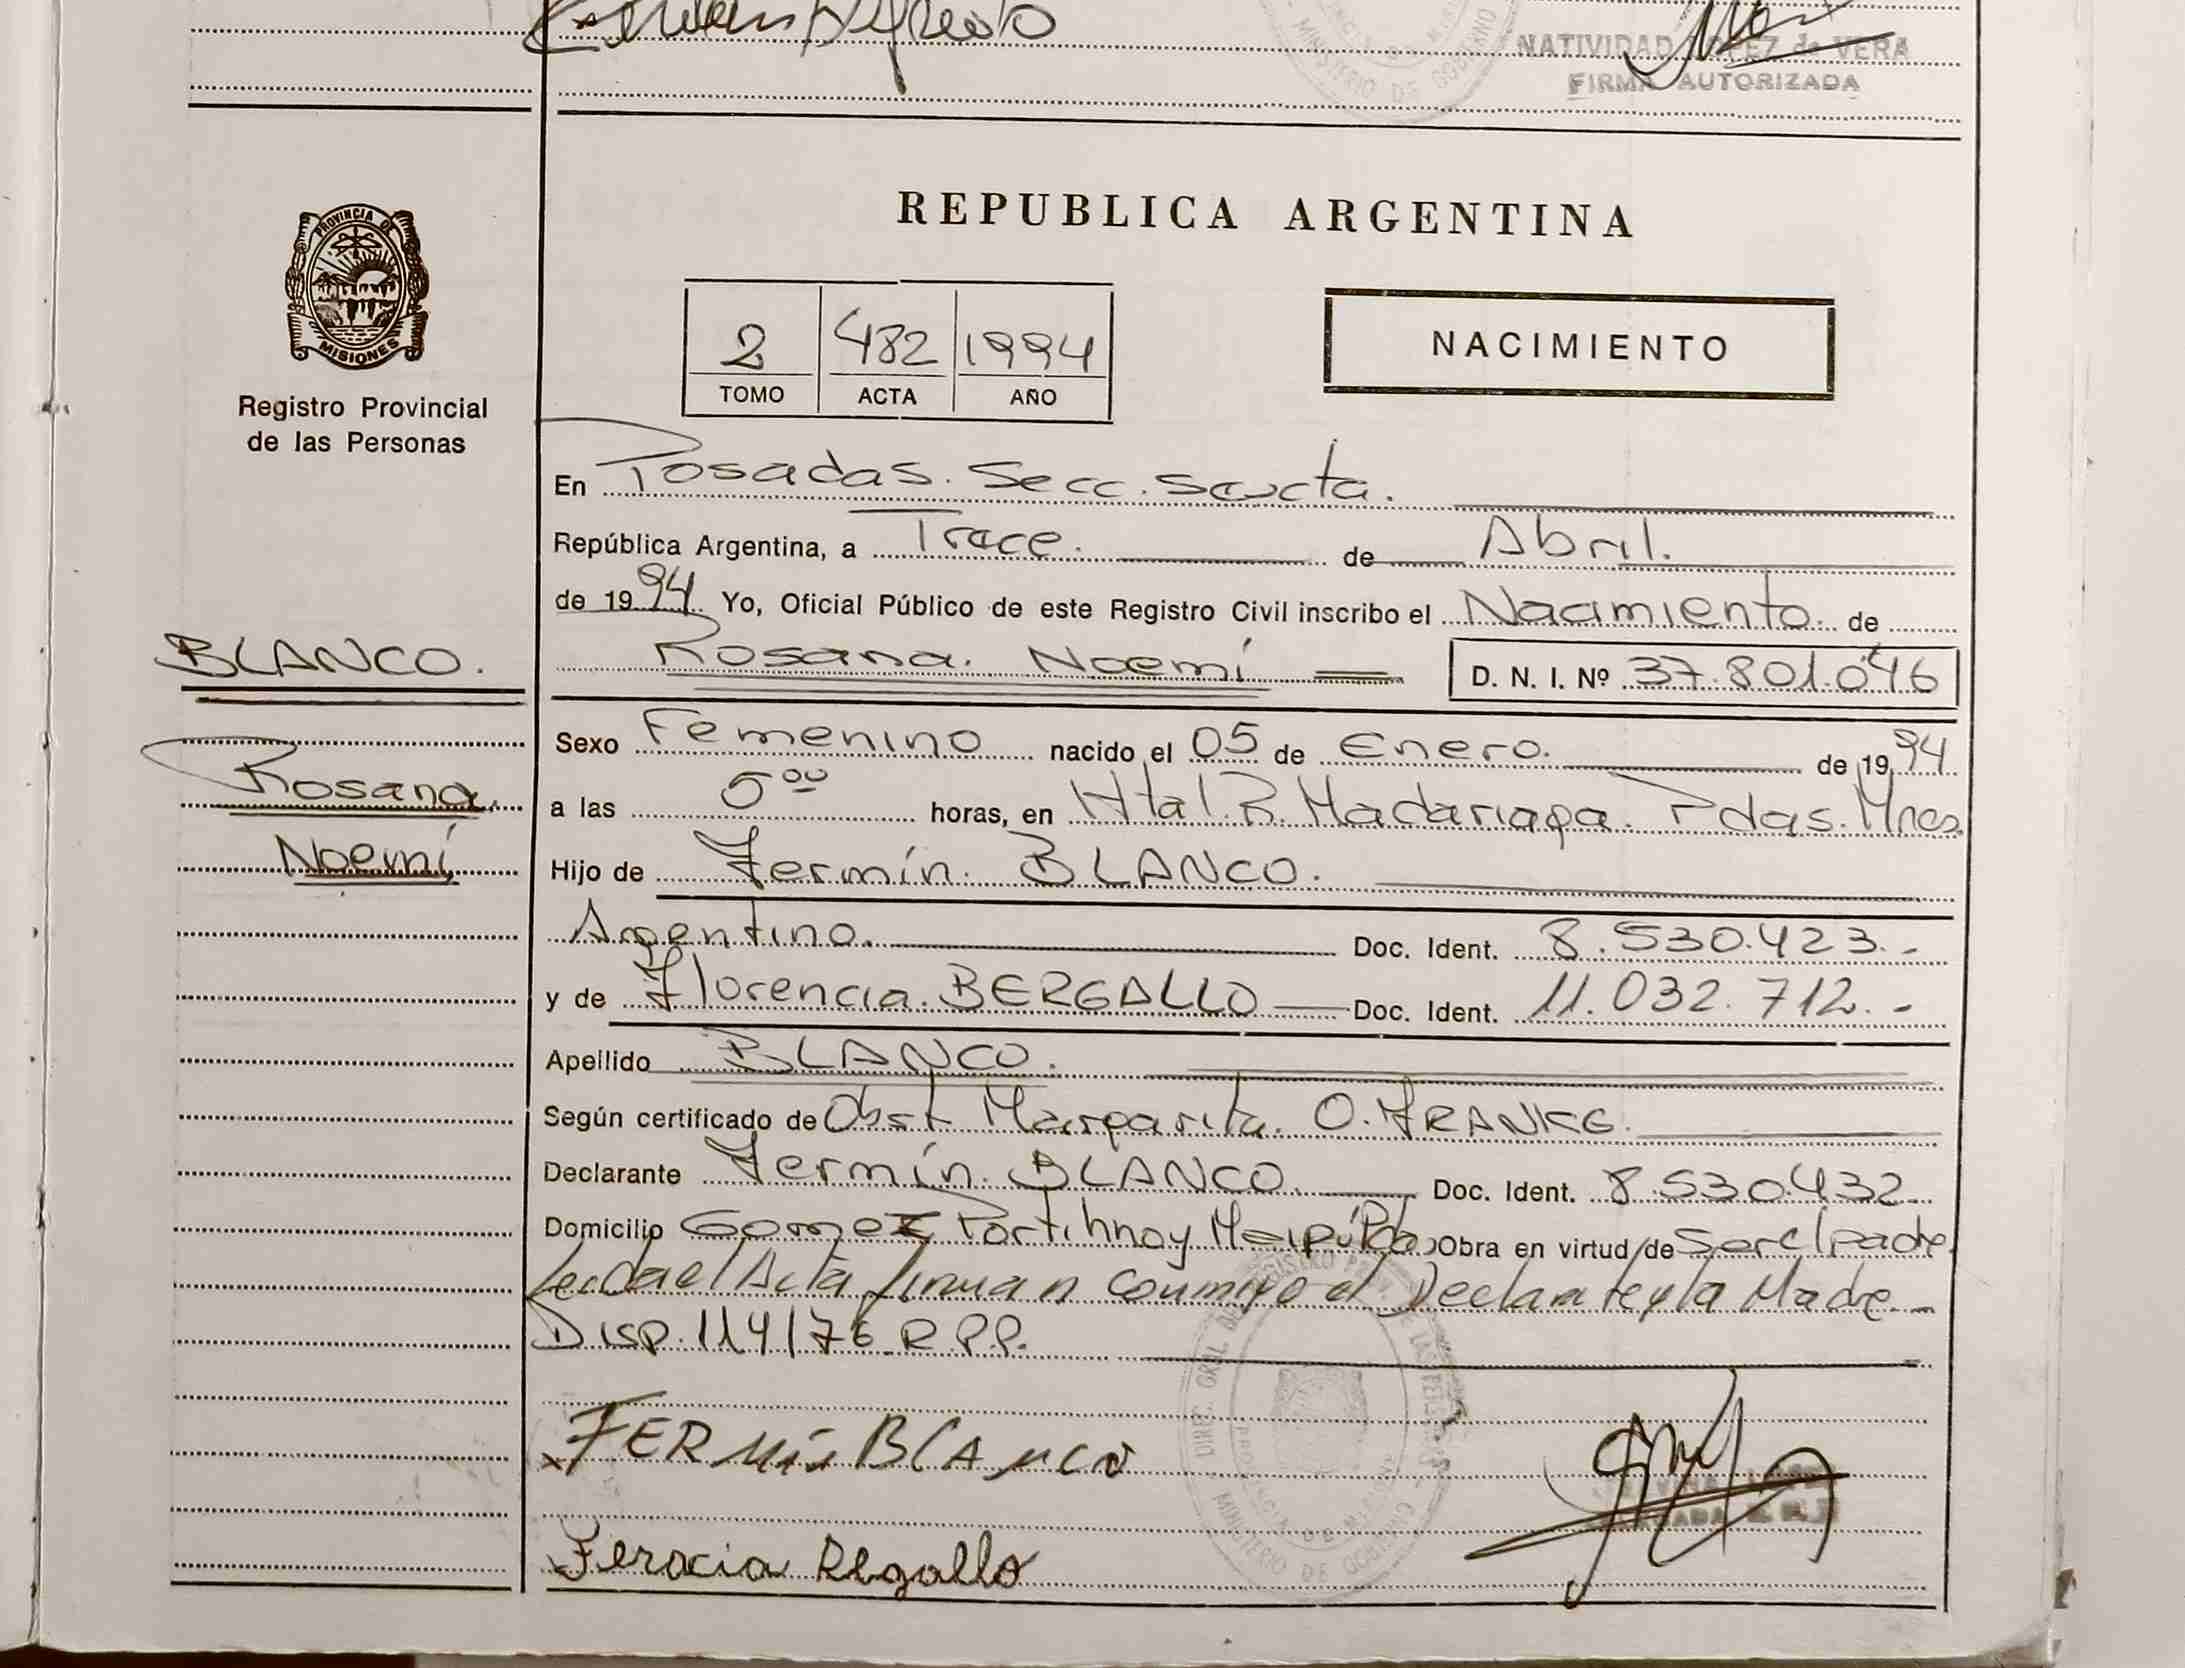 Alfredo
MINISTERIO DE GOBIERNO
NATIVIDAD LOPEZ de VERA
FIRMA AUTORIZADA
PROVINCIA DE
MISIONES
Registro Provincial
de las Personas
REPUBLICA ARGENTINA
2 482 1994
TOMO ACTA AÑO
NACIMIENTO
En Posadas. Secc. Sexta.
República Argentina, a Trece. de Abril.
de 1994 Yo, Oficial Público de este Registro Civil inscribo el Nacimiento. de
BLANCO.
Rosana. Noemí D. N. I. Nº 37.801.046
Sexo Femenino nacido el 05 de Enero. de 1994
Rosana.
a las 5⁰⁰ horas, en Htal. R. Madariaga. Pdas. Mnes.
Noemí
Hijo de Fermín. BLANCO.
Argentino. Doc. Ident. 8.530.423.-
y de Florencia. BERGALLO Doc. Ident. 11.032.712.-
Apellido BLANCO.
Según certificado de Obst. Margarita. O. FRANKE.
Declarante Fermín. BLANCO. Doc. Ident. 8.530.432
Domicilio Gomez Portinho y Maipú Pdas Obra en virtud de ser el padre.
Leída el Acta firman conmigo el Declarante y la Madre.-
Disp. 114/76 R.P.P.
DIREC. GRAL. DEL REGISTRO PROV. DE LAS PERSONAS
PROVINCIA DE MISIONES
MINISTERIO DE GOBIERNO
FERMIN BLANCO
Feracia Regallo